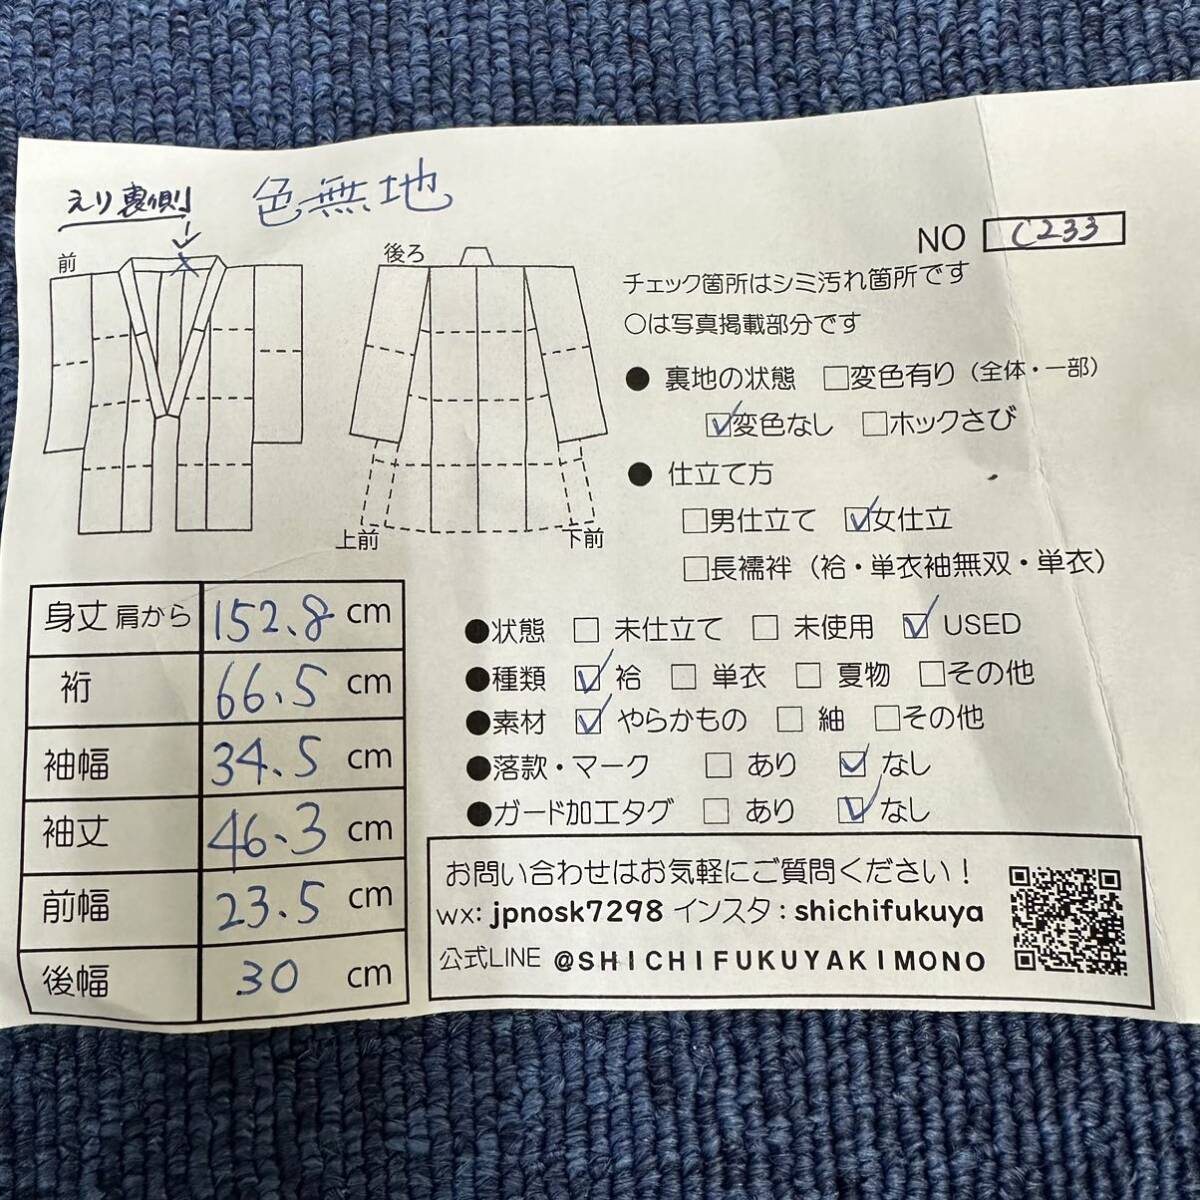 えり裏側
色無地
NO C233
前
後ろ
上前
下前
チェック箇所はシミ汚れ箇所です
○は写真掲載部分です
● 裏地の状態 □変色有り（全体・一部）
☑変色なし □ホックさび
● 仕立て方
□男仕立て ☑女仕立
□長襦袢（袷・単衣袖無双・単衣）
●状態 □ 未仕立て □ 未使用 ☑ USED
●種類 ☑ 袷 □ 単衣 □ 夏物 □その他
●素材 ☑ やらかもの □ 紬 □その他
●落款・マーク □ あり ☑ なし
●ガード加工タグ □ あり ☑ なし
身丈 肩から 152.8 cm
裄 66.5 cm
袖幅 34.5 cm
袖丈 46.3 cm
前幅 23.5 cm
後幅 30 cm
お問い合わせはお気軽にご質問ください！
wx: jpnosk7298 インスタ : shichifukuya
公式LINE @SHICHIFUKUYAKIMONO